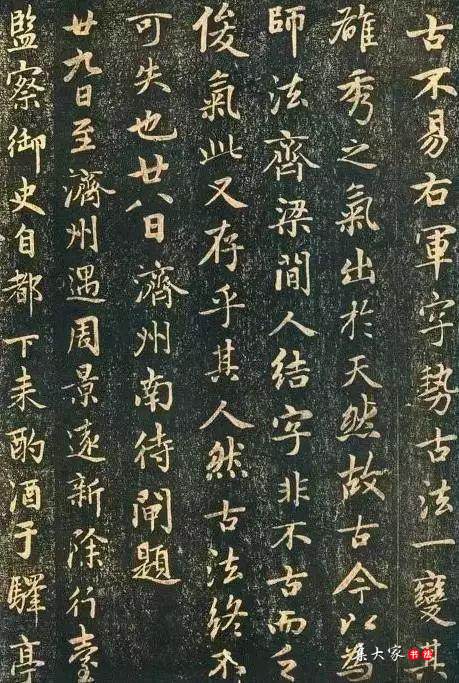 古不易右軍字勢古法一變其
雄秀之氣出於天然故古今以為
師法齊梁間人結字非不古而乏
俊氣此又存乎其人然古法終不
可失也廿八日濟州南待閘題
廿九日至濟州遇周景遠新除行臺
監察御史自都下来酌酒于驛亭
集大家
书法